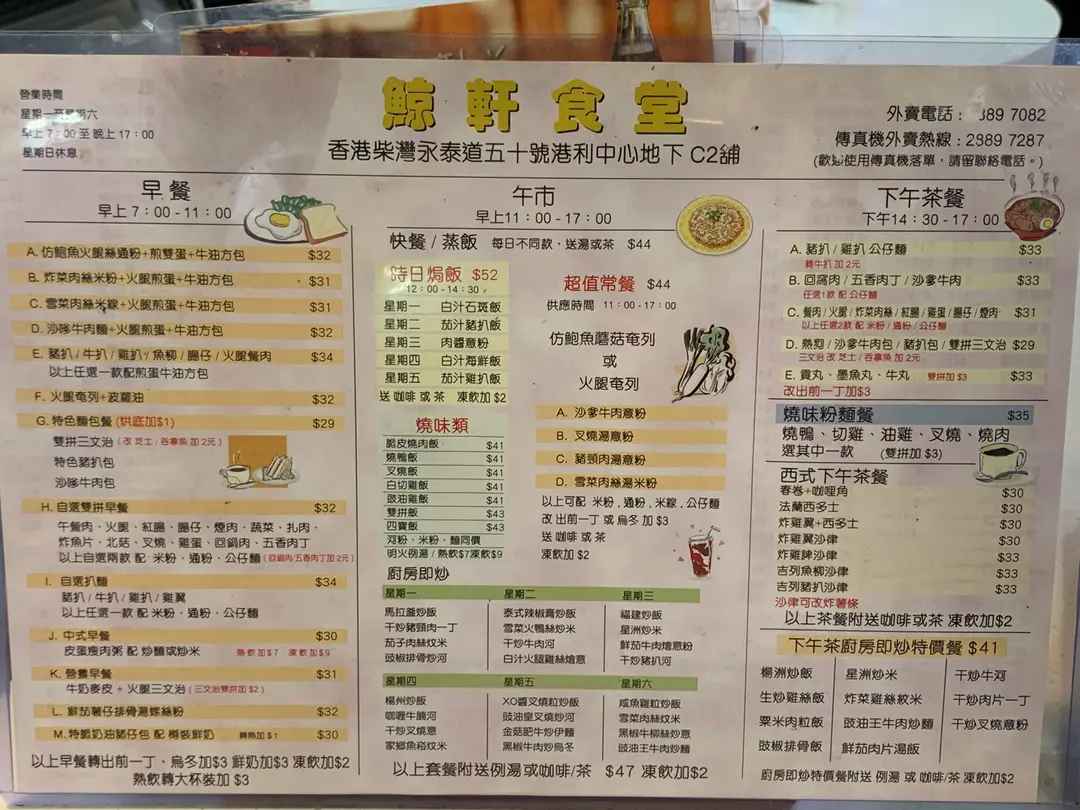 營業時間
星期一至星期六
早上 7:00 至 晚上 17:00
星期日休息
鯨軒食堂
香港柴灣永泰道五十號港利中心地下 C2舖
外賣電話: 889 7082
傳真機外賣熱線: 2889 7287
(歡迎使用傳真機落單,請留聯絡電話。)
早餐
早上 7:00 - 11:00
A. 仿鮑魚火腿絲通粉+煎雙蛋+牛油方包 $32
B. 炸菜肉絲米粉+火腿煎蛋+牛油方包 $31
C. 雪菜肉絲米線+火腿煎蛋+牛油方包 $31
D. 沙嗲牛肉麵+火腿煎蛋+牛油方包 $32
E. 豬扒/牛扒/雞扒/魚柳/腸仔/火腿餐肉 $34
以上任選一款配煎蛋牛油方包
F. 火腿奄列+波蘿油 $32
G. 特色麵包餐(烘底加$1) $29
雙拼三文治(改 芝士/吞拿魚 加 2元)
特色豬扒包
沙嗲牛肉包
H. 自選雙拼早餐 $32
午餐肉、火腿、紅腸、腸仔、煙肉、蔬菜、扎肉、
炸魚片、北菇、叉燒、雞蛋、回鍋肉、五香肉丁
以上自選兩款 配 米粉、通粉、公仔麵(回鍋肉/五香肉丁加2元)
I. 自選扒麵 $34
豬扒/牛扒/雞扒/雞翼
以上任選一款 配 米粉、通粉、公仔麵
J. 中式早餐 $30
皮蛋瘦肉粥 配 炒麵或炒米 熱飲加$7 凍飲加$9
K. 營養早餐 $31
牛奶麥皮 + 火腿三文治(三文治雙拼加 $2)
L. 鮮茄薯仔排骨湯螺絲粉 $32
M. 特脆奶油豬仔包 配 樽裝鮮奶 轉熱加 $1 $30
以上早餐轉出前一丁、烏冬加$3 鮮奶加$3 凍飲加$2
熱飲轉大杯裝加 $3
午市
早上11:00 - 17:00
快餐 / 蒸飯 每日不同款,送湯或茶 $44
時日焗飯 $52
12:00 - 14:30
星期一 白汁石斑飯
星期二 茄汁豬扒飯
星期三 肉醬意粉
星期四 白汁海鮮飯
星期五 茄汁雞扒飯
送 咖啡 或 茶 凍飲加 $2
燒味類
脆皮燒肉飯 $41
燒鴨飯 $41
叉燒飯 $41
白切雞飯 $41
豉油雞飯 $41
雙拼飯 $43
四寶飯 $43
河粉、米粉、麵同價
明火例湯 / 熱飲$7凍飲$9
超值常餐 $44
供應時間 11:00 - 17:00
仿鮑魚蘑菇奄列
或
火腿奄列
A. 沙爹牛肉意粉
B. 叉燒湯意粉
C. 豬頸肉湯意粉
D. 雪菜肉絲湯米粉
以上可配 米粉,通粉,米線,公仔麵
改 出前一丁 或 烏冬 加 $3
送 咖啡 或 茶
凍飲加 $2
廚房即炒
星期一 星期二 星期三
馬拉盞炒飯 泰式辣椒膏炒飯 福建炒飯
干炒豬頸肉一丁 雪菜火鴨絲炒米 星洲炒米
茄子肉絲炆米 干炒牛肉河 鮮茄牛肉燴意粉
豉椒排骨炒河 白汁火腿雞絲燴意 干炒豬扒河
星期四 星期五 星期六
楊州炒飯 XO醬叉燒粒炒飯 咸魚雞粒炒飯
咖喱牛腩河 豉油皇叉燒炒河 雪菜肉絲炆米
干炒叉燒意 金菇肥牛炒伊麵 黑椒牛柳絲炒意
家鄉魚崧炆米 黑椒牛肉炒烏冬 豉油王牛肉炒麵
以上套餐附送例湯或咖啡/茶 $47 凍飲加$2
下午茶餐
下午14:30 - 17:00
A. 豬扒 / 雞扒 公仔麵 $33
轉牛扒 加 2元
B. 回窩肉 / 五香肉丁 / 沙爹牛肉 $33
任選1款 配 公仔麵
C. 餐肉/火腿/炸菜肉絲/紅腸/雞蛋/腸仔/煙肉 $31
以上任選2款 配 米粉/通粉/公仔麵
D. 熱狗/沙爹牛肉包/豬扒包/雙拼三文治 $29
三文治 改 芝士/吞拿魚 加 2元
E. 貢丸、墨魚丸、牛丸 雙拼加 $3 $33
改出前一丁加$3
燒味粉麵餐 $35
燒鴨、切雞、油雞、叉燒、燒肉
選其中一款 (雙拼加 $3)
西式下午茶餐
春卷+咖喱角 $30
法蘭西多士 $30
炸雞翼+西多士 $30
炸雞翼沙律 $30
炸雞脾沙律 $33
吉列魚柳沙律 $33
吉列豬扒沙律 $33
沙律可改炸薯條
以上茶餐附送咖啡或茶 凍飲加$2
下午茶廚房即炒特價餐 $41
楊洲炒飯 星洲炒米 干炒牛河
生炒雞絲飯 炸菜雞絲炆米 干炒肉片一丁
粟米肉粒飯 豉油王牛肉炒麵 干炒叉燒意粉
豉椒排骨飯 鮮茄肉片湯飯
廚房即炒特價餐附送 例湯 或 咖啡/茶 凍飲加$2